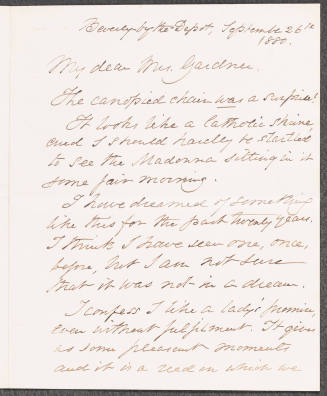 Beverly by the Depot, September 26th
1880.
My dear Mrs. Gardner.
The canopied chair was a surprise!
It looks like a Catholic shrine,
and I should hardly be startled
to see the Madonna sitting in it
some fair morning.
I have dreamed of something
like this for the past twenty years.
I think I have seen one, once,
before, but I am not sure
that it was not in a dream.
I confess I like a lady's promise,
even without fulfilment. It gives
us some pleasant moments
and it is a reed on which we